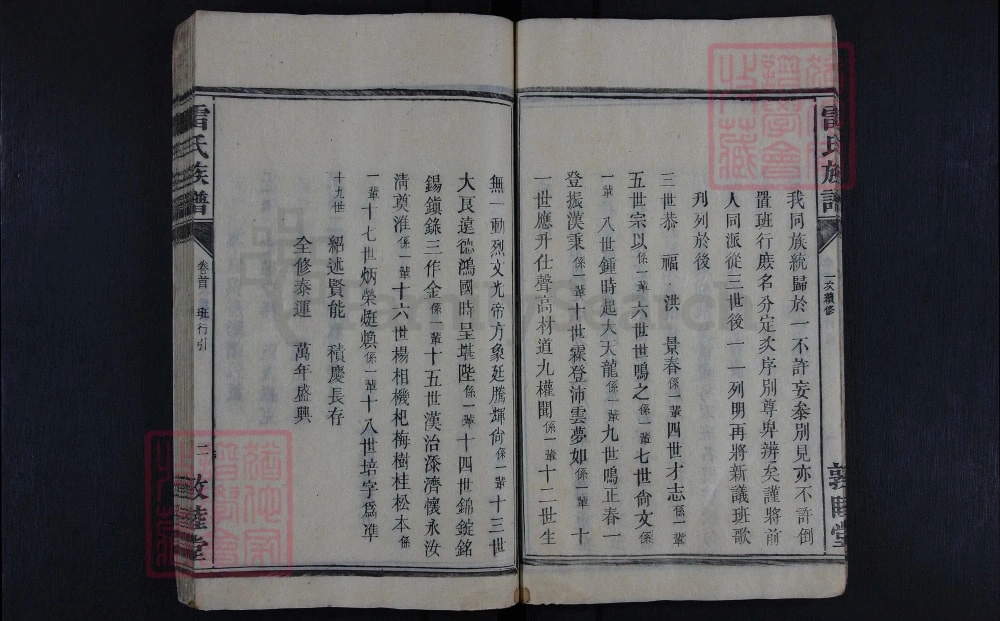 雷氏族譜
一次續修
敦睦堂
我同族統歸於一不許妄叅別見亦不許倒
置班行庶名分定炎序別尊卑辨矣謹將前
人同派從三世後一一列明再將新議班歌
刋列於後
三世恭 福 洪 景春係一輩四世才志係一輩
五世宗以係一輩六世世鳴之係一輩七世尙文係
一輩 八世鍾時起大天龍係一輩九世鳴正春一
登振漢秉係一輩十世霖登沛雲夢如係一輩 十
一世應升仕聲高材道九權聞係一輩十二世生
無一動烈文光帝方象廷騰輝尙係一輩十三世
大艮達德鴻國時呈堪陛係一輩十四世錦錠銘
錫鎭錄三作金係一輩十五世漢治添濟懷永汝
淸奠淮係一輩十六世楊相機杞梅樹桂松本係
一輩十七世炳榮烻煥係一輩十八世培字爲凖
十九世 紹述賢能 積慶長存
全修泰運 萬年盛興
雷氏族譜
卷首 班行引
二
敦睦堂